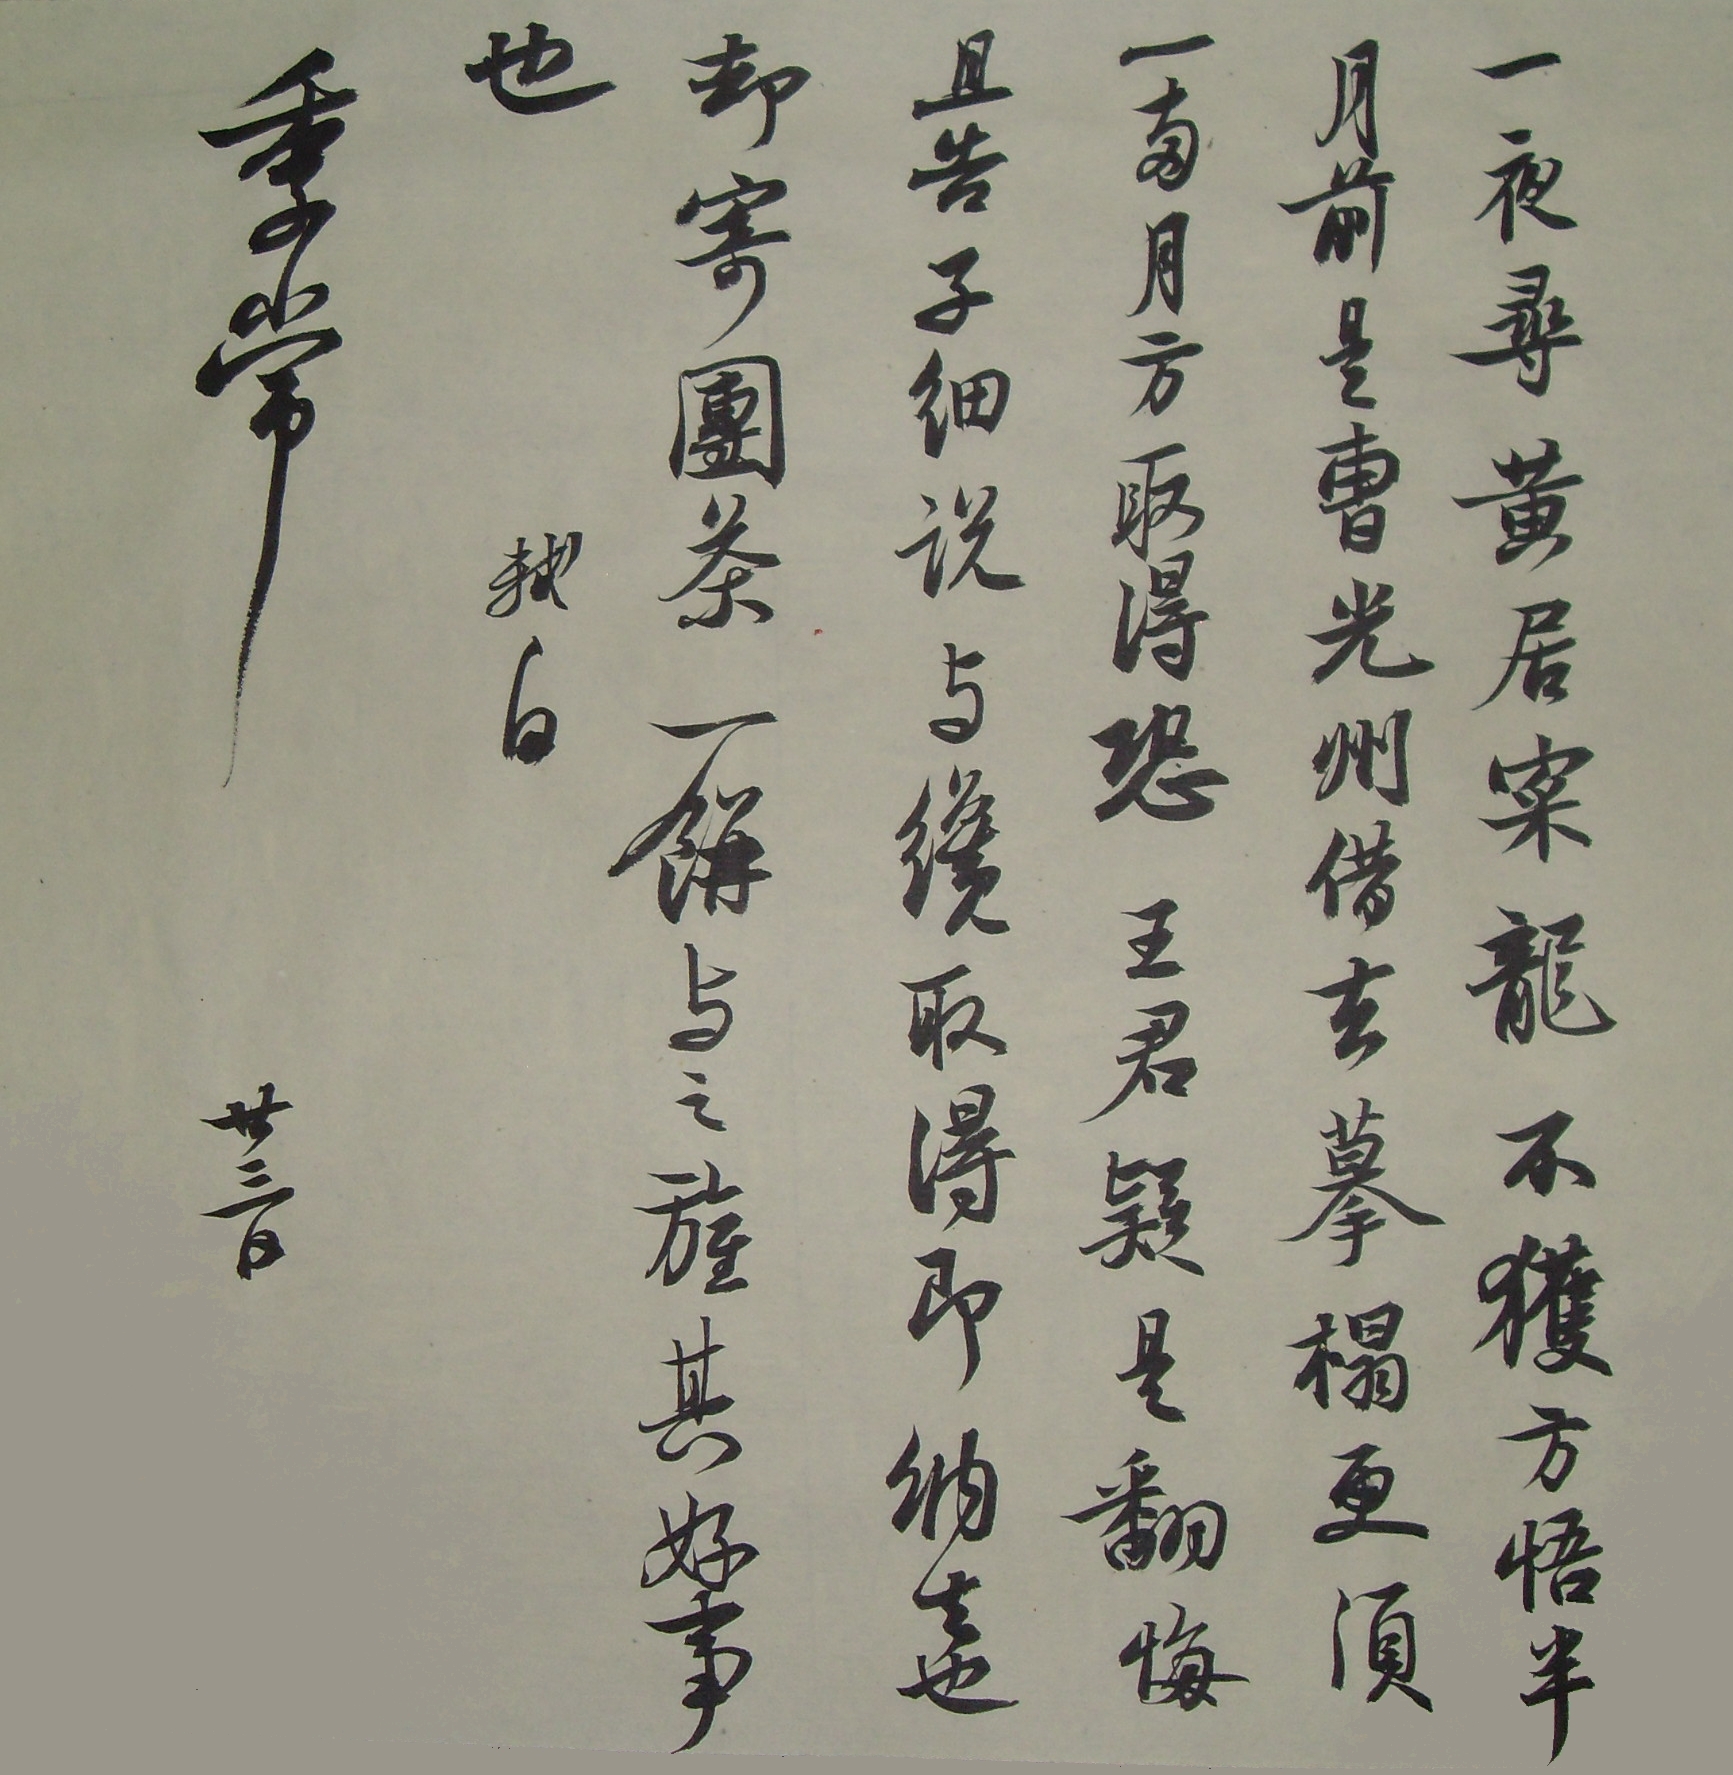 一夜尋黃居寀龍不獲方悟半
月前是曹光州借去摹榻更須
一兩月方取得恐王君疑是翻悔
且告子細說与纔取得即納去也
却寄團茶一餅与之旌其好事
也
軾白
季常
廿三日